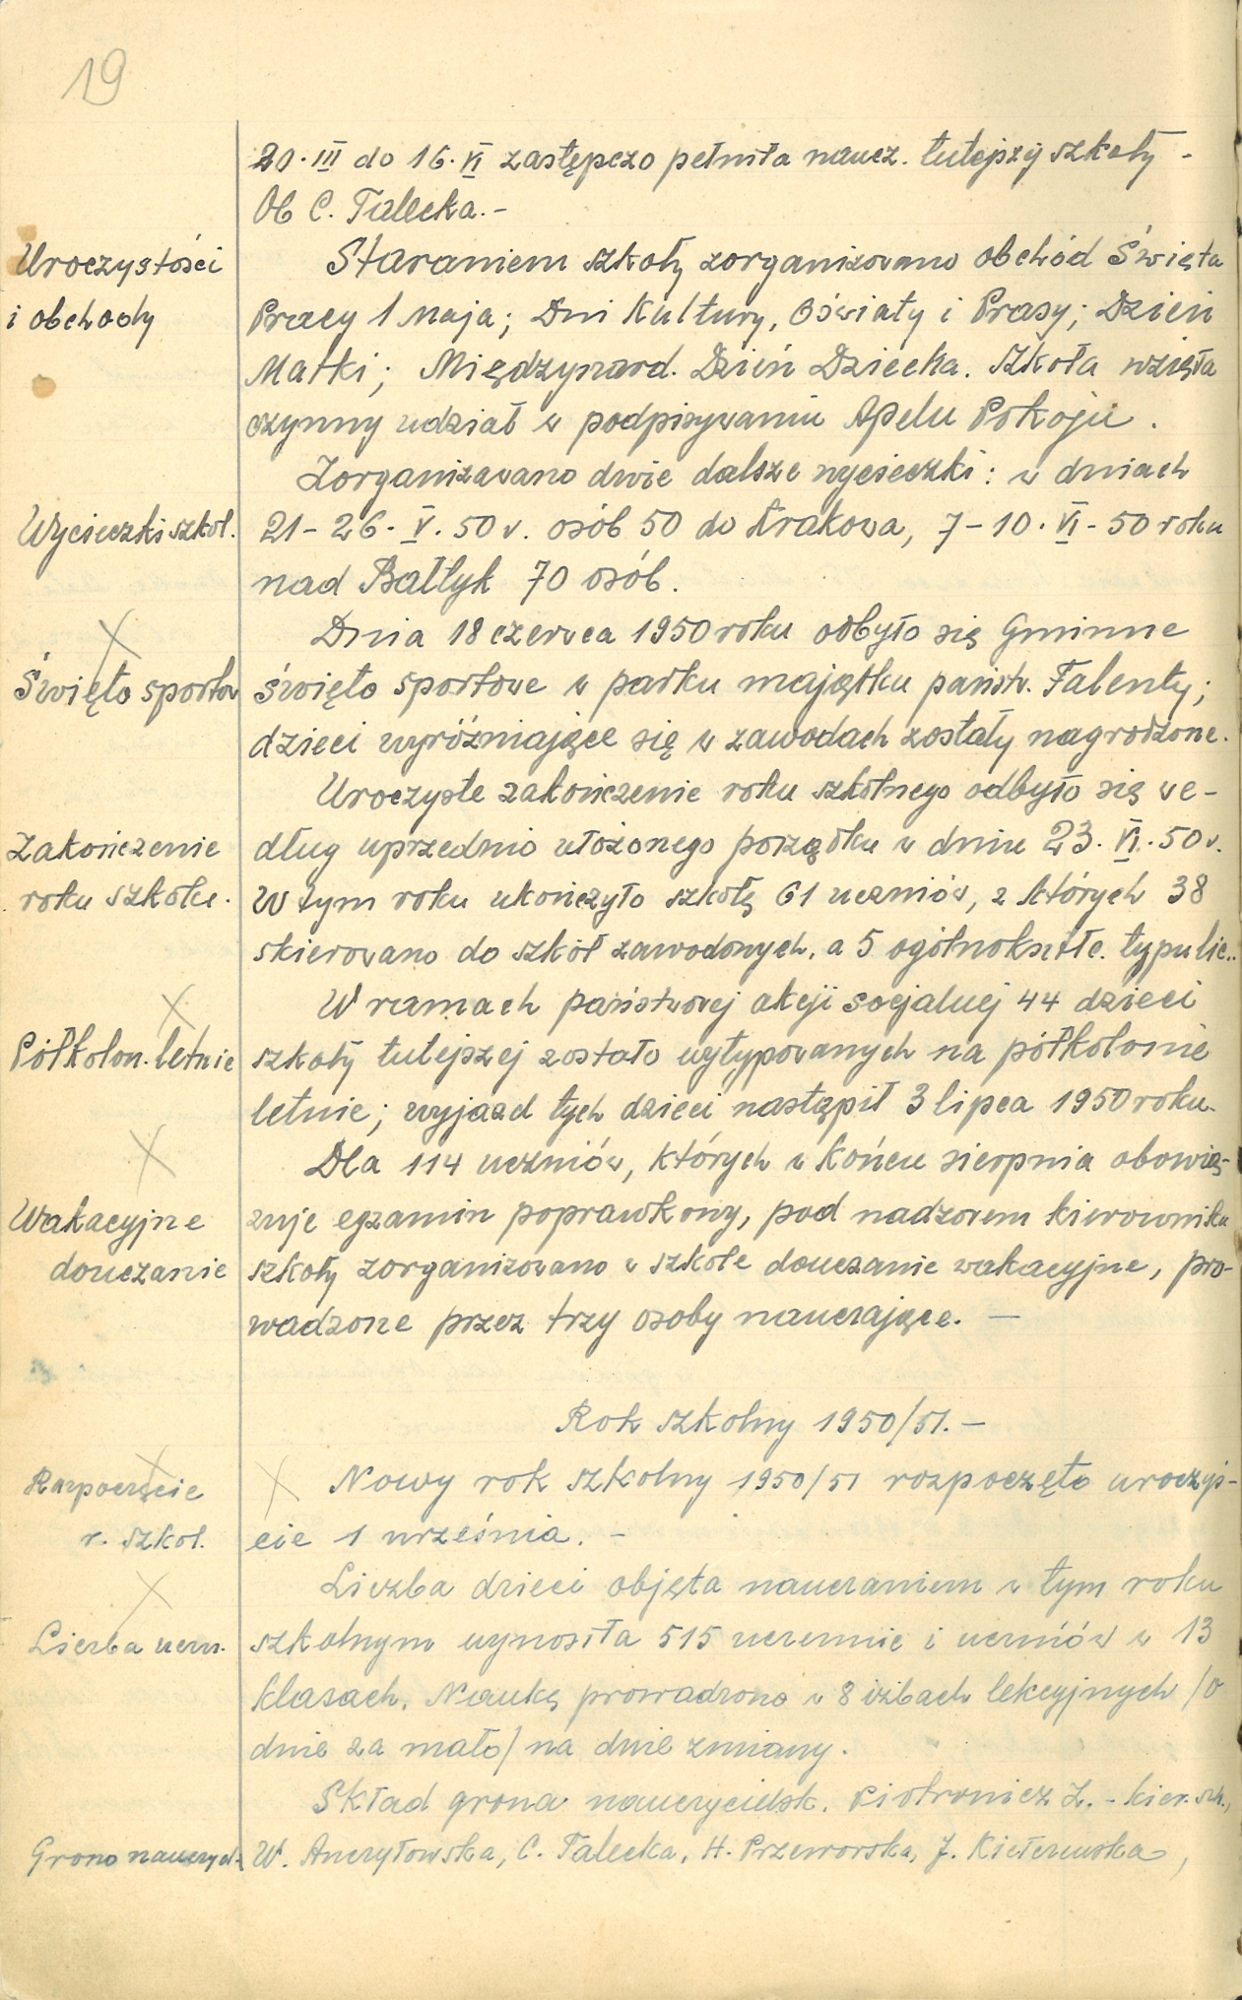 19
20. III do 16. VI zastępczo pełniła naucz. tutejszej szkoły -
Ob C. Talecka. -
Uroczystości
i obchody
Staraniem szkoły zorganizowano obchód Święta
Pracy 1 Maja; Dni Kultury, Oświaty i Prasy; Dzień
Matki; Międzynard. Dzień Dziecka. Szkoła wzięła
czynny udział w podpisywaniu Apelu Pokoju.
Zorganizowano dwie dalsze wycieczki: w dniach
Wycieczki szkol.
21 - 26. V. 50 r. osób 50 do Krakowa, 7 - 10. VI - 50 roku
nad Bałtyk 70 osób.
Dnia 18 czerwca 1950 roku odbyło się Gminne
Święto sportow
święto sportowe w parku majątku państw. Falenty;
dzieci wyróżniające się w zawodach zostały nagrodzone.
Uroczyste zakończenie roku szkolnego odbyło się we-
Zakończenie
roku szkoln.
dług uprzednio ułożonego porządku w dniu 23. VI. 50 r.
W tym roku ukończyło szkołę 61 uczniów, z których 38
skierowano do szkół zawodowych, a 5 ogólnokształc. typu lic..
W ramach państwowej akcji socjalnej 44 dzieci
Półkolon. letnie
szkoły tutejszej zostało wytypowanych na półkolonie
letnie; wyjazd tych dzieci nastąpił 3 lipca 1950 roku.
Dla 114 uczniów, których w końcu sierpnia obowią-
Wakacyjne
douczanie
zuje egzamin poprawkowy, pod nadzorem kierownika
szkoły zorganizowano w szkole douczanie wakacyjne, pro-
wadzone przez trzy osoby nauczające. -
Rok szkolny 1950/51. -
Rozpoczęcie
r. szkol.
Nowy rok szkolny 1950/51 rozpoczęto uroczyś-
cie 1 września. -
Liczba dzieci objęta nauczaniem w tym roku
Liczba uczn.
szkolnym wynosiła 515 uczennic i uczniów w 13
klasach. Naukę prowadzono w 8 izbach lekcyjnych /o
dwie za mało/ na dwie zmiany.
Skład grona nauczycielsk. Piotrowicz Z. - kier. szk.,
Grono nauczyciel.
W. Anczyłowska, C. Talecka, H. Przeworska, J. Kiełczewska,